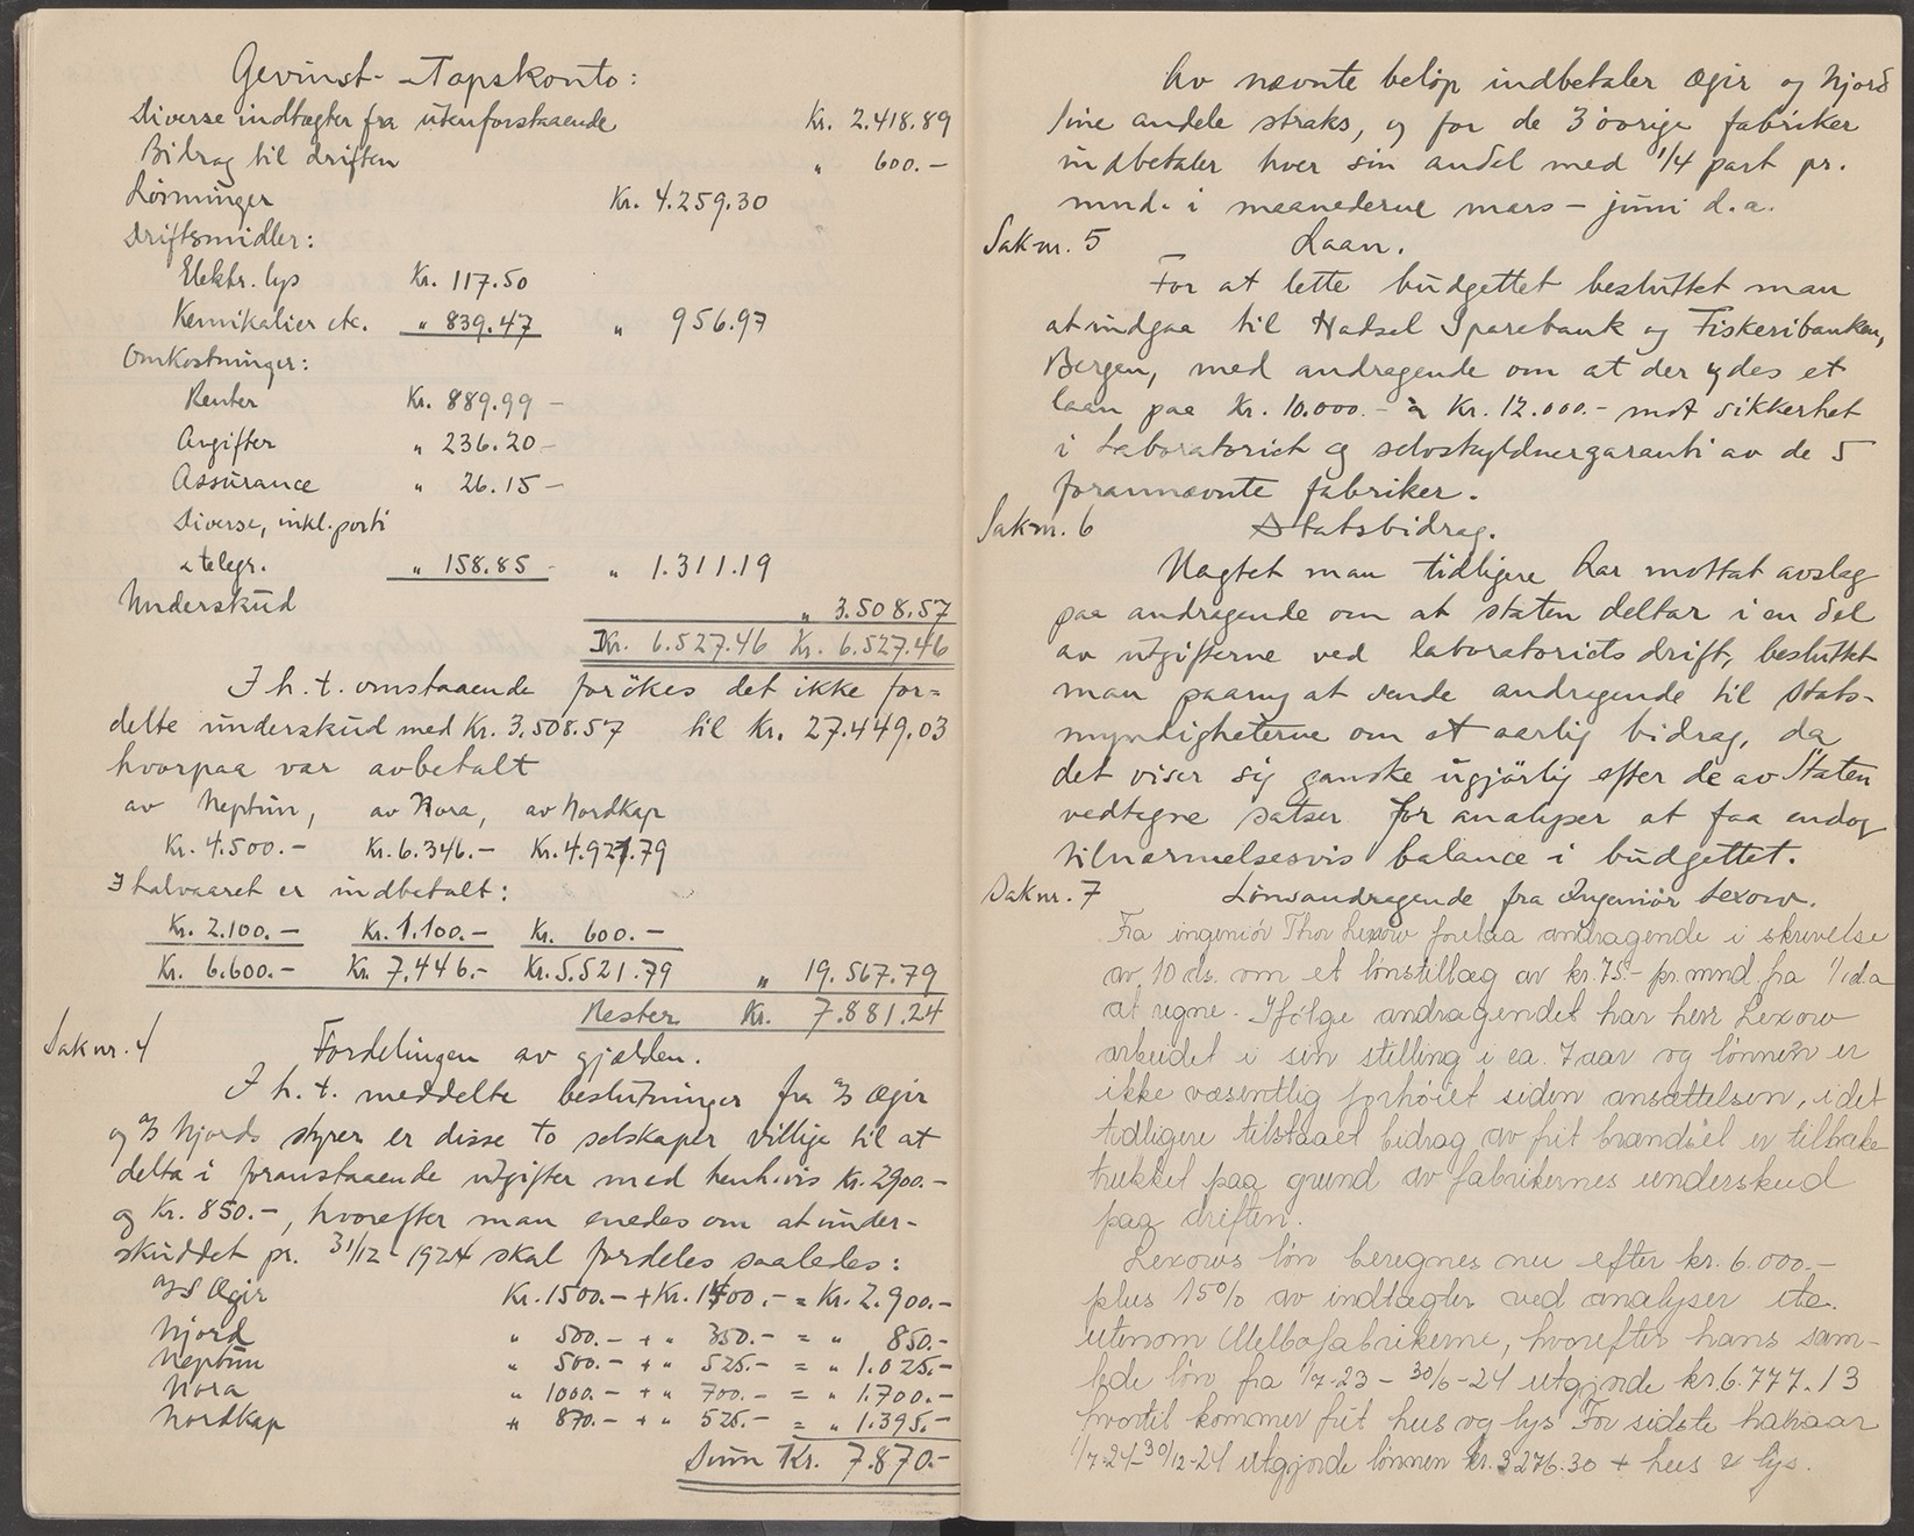 Gevinst- Tapskonto:
Diverse indtægter fra utenforstaaende Kr. 2.418.89
Bidrag til driften " 600.-
Lønninger Kr. 4.259.30
Driftsmidler:
Elektr. lys Kr. 117.50
Kemikalier etc. " 839.47 " 956.97
Omkostninger:
Renter Kr. 889.99 -
Avgifter " 236.20 -
Assurance " 26.15 -
Diverse, inkl. porti
& telegr. " 158.85 - " 1.311.19
Underskud " 3.508.57
Kr. 6.527.46 Kr. 6.527.46
I h. t. omstaaende forökes det ikke for=
delte underskud med Kr. 3.508.57 til Kr. 27.449.03
hvorpaa var avbetalt
av Neptun, av Nora, av Nordkap
Kr. 4.500.- Kr. 6.346.- Kr. 4.921.79
I halvaaret er indbetalt:
Kr. 2.100.- Kr. 1.100.- Kr. 600.-
Kr. 6.600.- Kr. 7.446.- Kr. 5.521.79 " 19.567.79
Rester Kr. 7.881.24
Sak nr. 4 Fordelingen av gjælden.
I h. t. meddelte beslutninger fra A/S Ægir
og A/S Njords styrer er disse to selskaper villige til at
delta i foranstaaende utgifter med henh.vis Kr. 2900.-
og Kr. 850.-, hvorefter man enedes om at under-
skuddet pr. 31/12 - 1924 skal fordeles saaledes:
A/S Ægir Kr. 1500.- + Kr. 1400.- = Kr. 2.900.-
Njord " 500.- + " 350.- = " 850.-
Neptun " 500.- + " 525.- = " 1.025.-
Nora " 1000.- + " 700.- = " 1.700.-
Nordkap " 870.- + " 525.- = " 1.395.-
Sum Kr. 7.870.-
Av nævnte beløp indbetaler Ægir og Njord
sine andele straks, og for de 3 övrige fabriker
indbetaler hver sin andel med 1/4 part pr.
mnd. i maanederne mars - juni d.a.
Sak nr. 5 Laan.
For at lette budgettet besluttet man
at indgaa til Hadsel Sparebank og Fiskeribanken,
Bergen, med andragende om at der ydes et
laan paa Kr. 10.000.- à Kr. 12.000.- mot sikkerhet
i Laboratoriet og selvskyldnergaranti av de 5
forannævnte fabriker.
Sak nr. 6 Statsbidrag.
Uagtet man tidligere har mottat avslag
paa andragende om at staten deltar i en del
av utgifterne ved laboratoriets drift, besluttet
man paany at sende andragende til Stats-
myndigheterne om et aarlig bidrag, da
det viser sig ganske ugjörlig efter de av Staten
vedtagne satser for analyser at faa endog
tilnærmelsesvis balance i budgettet.
Sak nr. 7 Lönsandragende fra Ingeniör Lexow.
Fra ingeniör Thor Lexow forelaa andragende i skrivelse
av 10 ds. om et lönstillæg av kr. 75.- pr. mnd. fra 1/1 d.a
at regne. Ifölge andragendet har herr Lexow
arbeidet i sin stilling i ca. 7 aar og lönnen er
ikke væsentlig forhöiet siden ansættelsen, idet
tidligere tilstaaet bidrag av frit brændsel er tilbake-
trukket paa grund av fabrikernes underskud
paa driften.
Lexows lön beregnes nu efter kr. 6.000.-
plus 15% av indtægter ved analyser etc.
utenom Melbofabrikerne, hvorefter hans sam-
lede lön fra 1/7-23 - 30/6-24 utgjorde kr. 6.777.13
hvortil kommer frit hus og lys For sidste halvaar
1/7-24-30/12-24 utgjorde lönnen kr. 3276.30 + hus & lys.